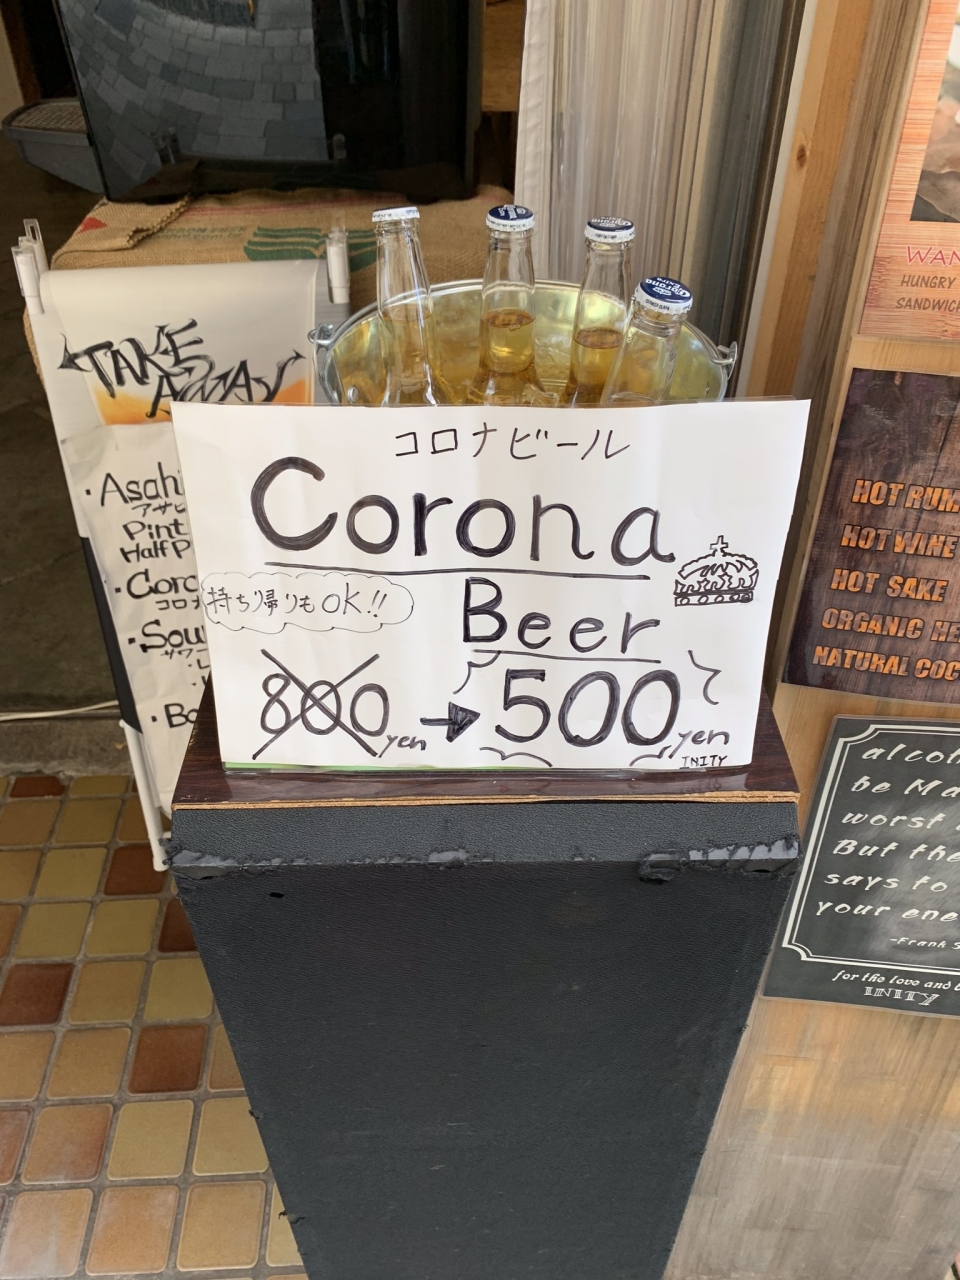 コロナビール
Corona
Beer
持ち帰りもOK!!
800yen → 500yen
INITY
TAKE
AWAY
・Asahi
アサヒ
Pint
Half P
・Coro
コロナ
・Sou
サワー
・Bo
WAN
HUNGRY
SANDWICH
HOT RUM
HOT WINE
HOT SAKE
ORGANIC HE
NATURAL COC
alcoh
be Ma
worst
But the
says to
your ene
-Frank S
for the love and
INITY